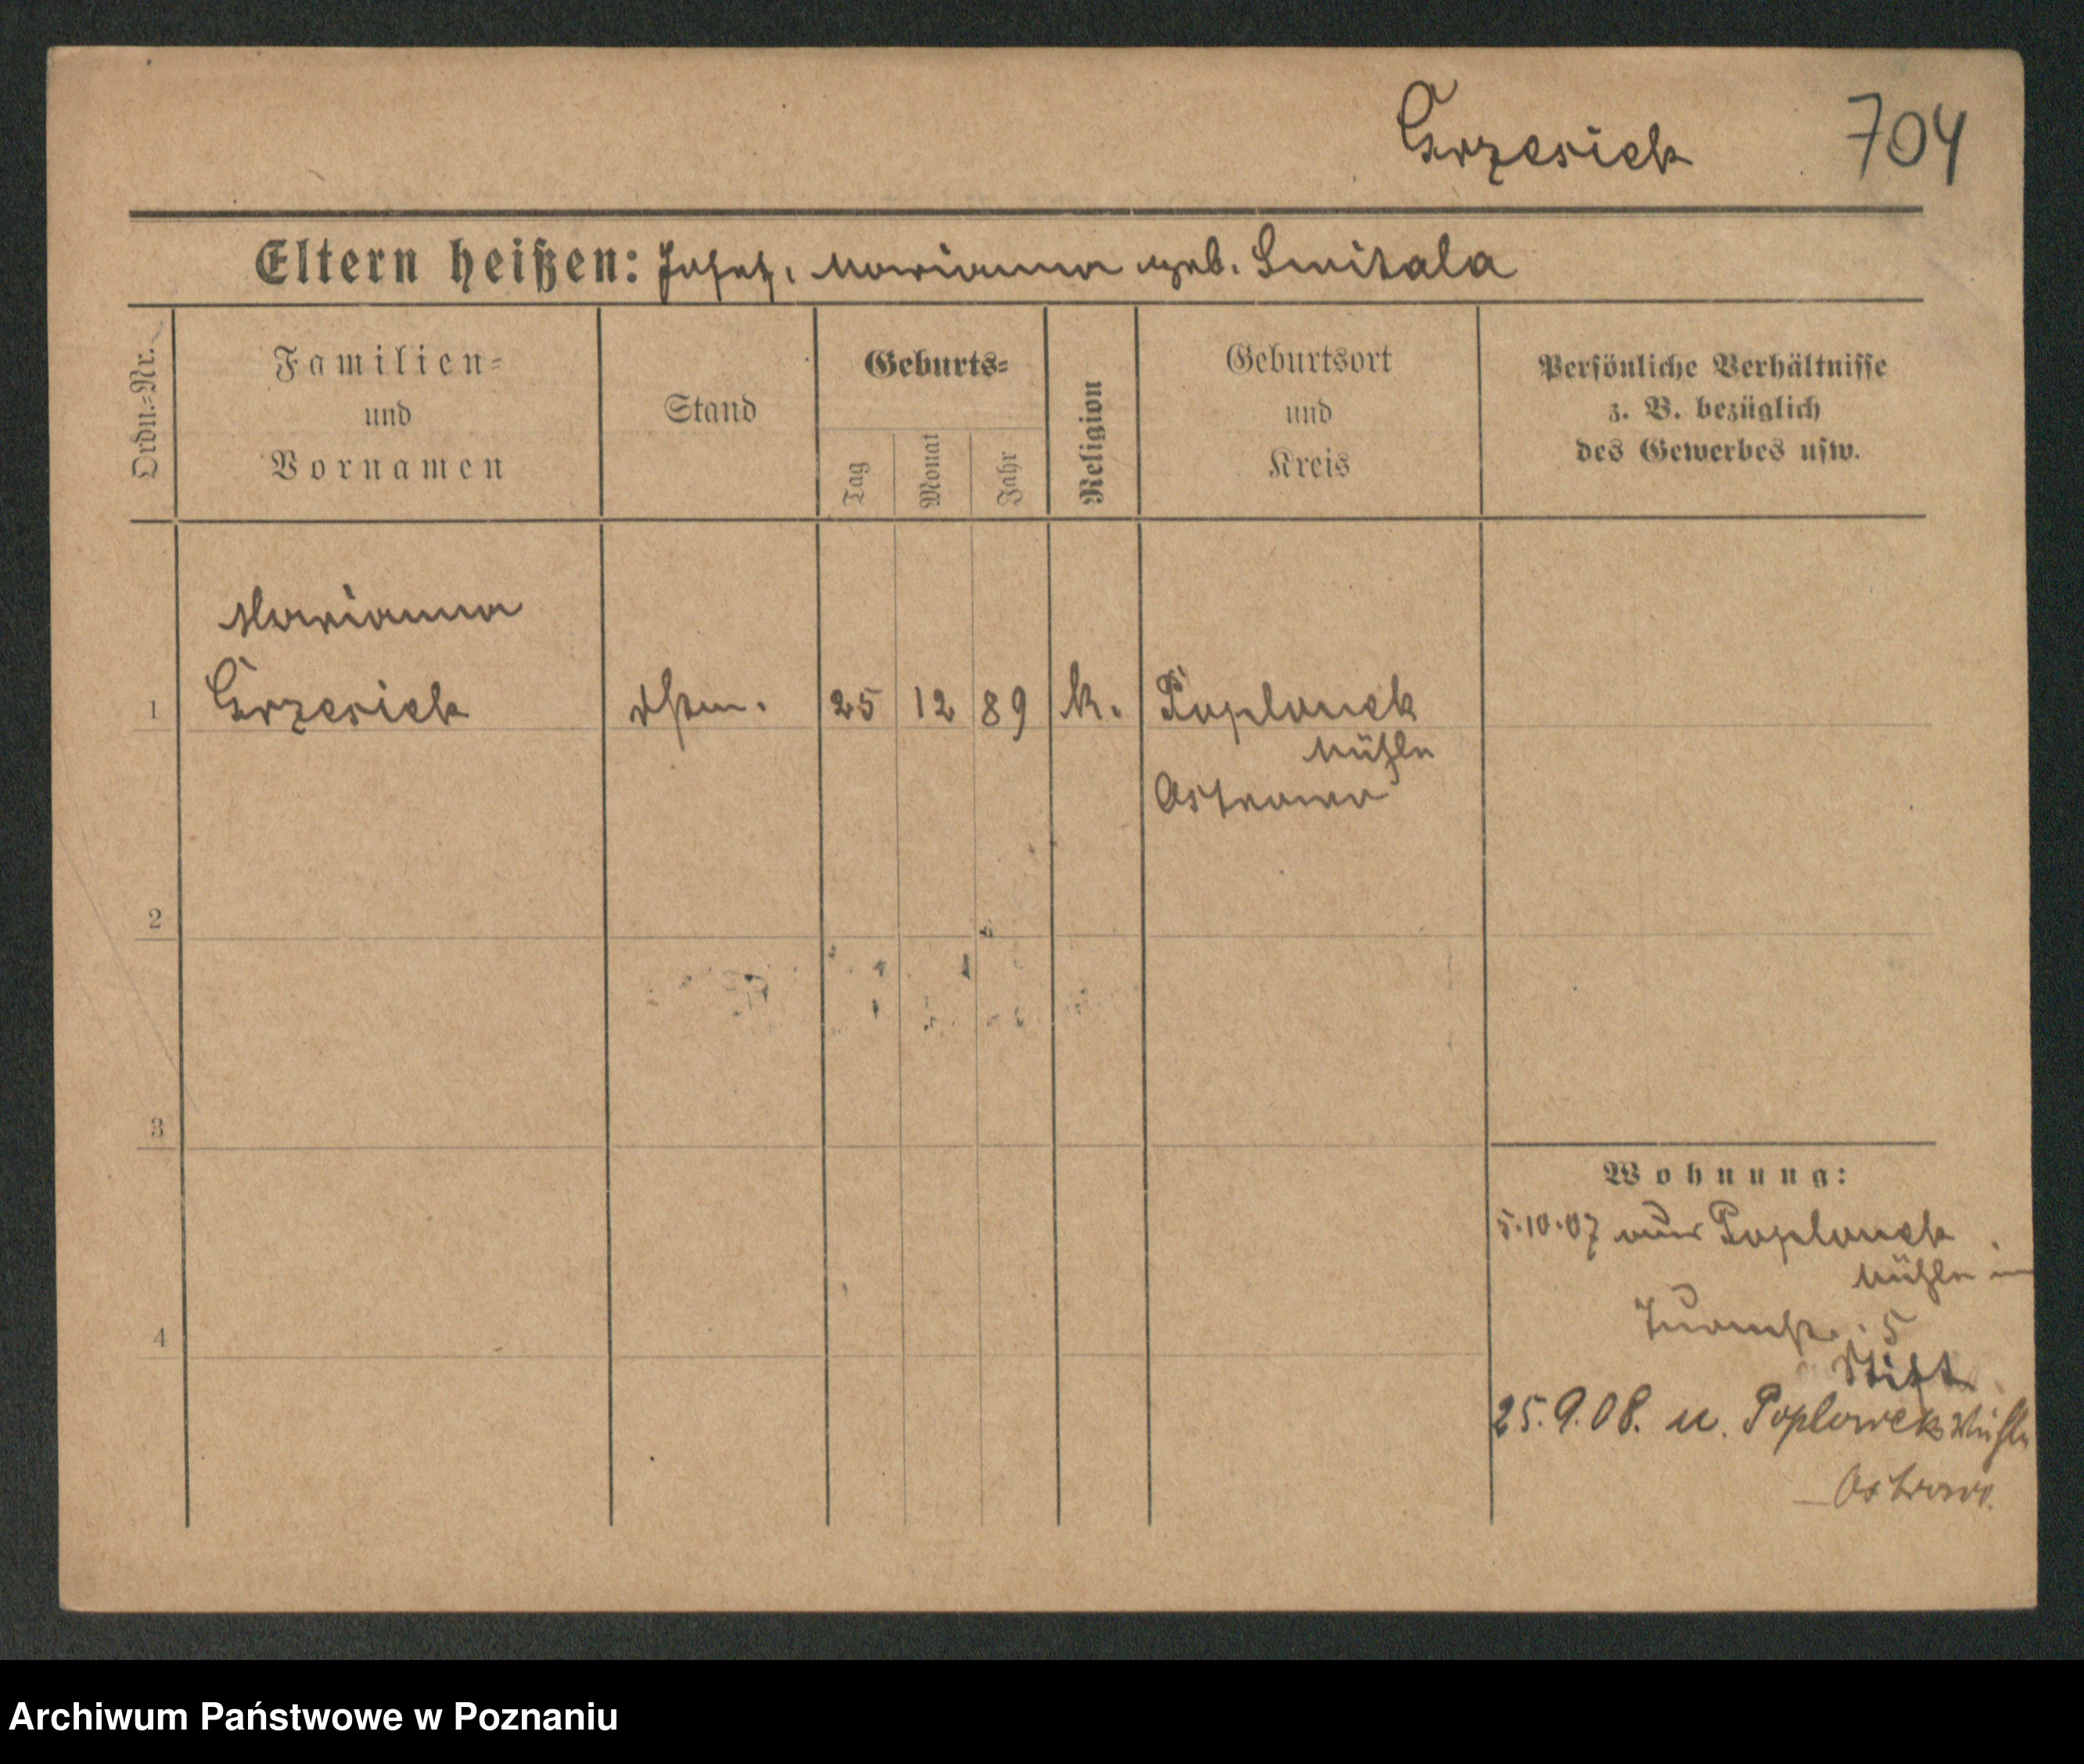 Grzesiek 704
Eltern heißen: Josef, Marianna geb. Smitala
Ordn.=Nr.
Familien=
und
Vornamen
Stand
Geburts=
Tag
Monat
Jahr
Religion
Geburtsort
und
Kreis
Persönliche Verhältnisse
z. B. bezüglich
des Gewerbes usw.
Marianna
1 Grzesiek 25 12 89 k. Poplonek
Mühle
Ostrowo
2
3
4
Wohnung:
5.10.07 aus Poplonek
Mühle in
5
Stift
25.9.08. n. Poplonek Mühle
Ostrowo.
Archiwum Państwowe w Poznaniu